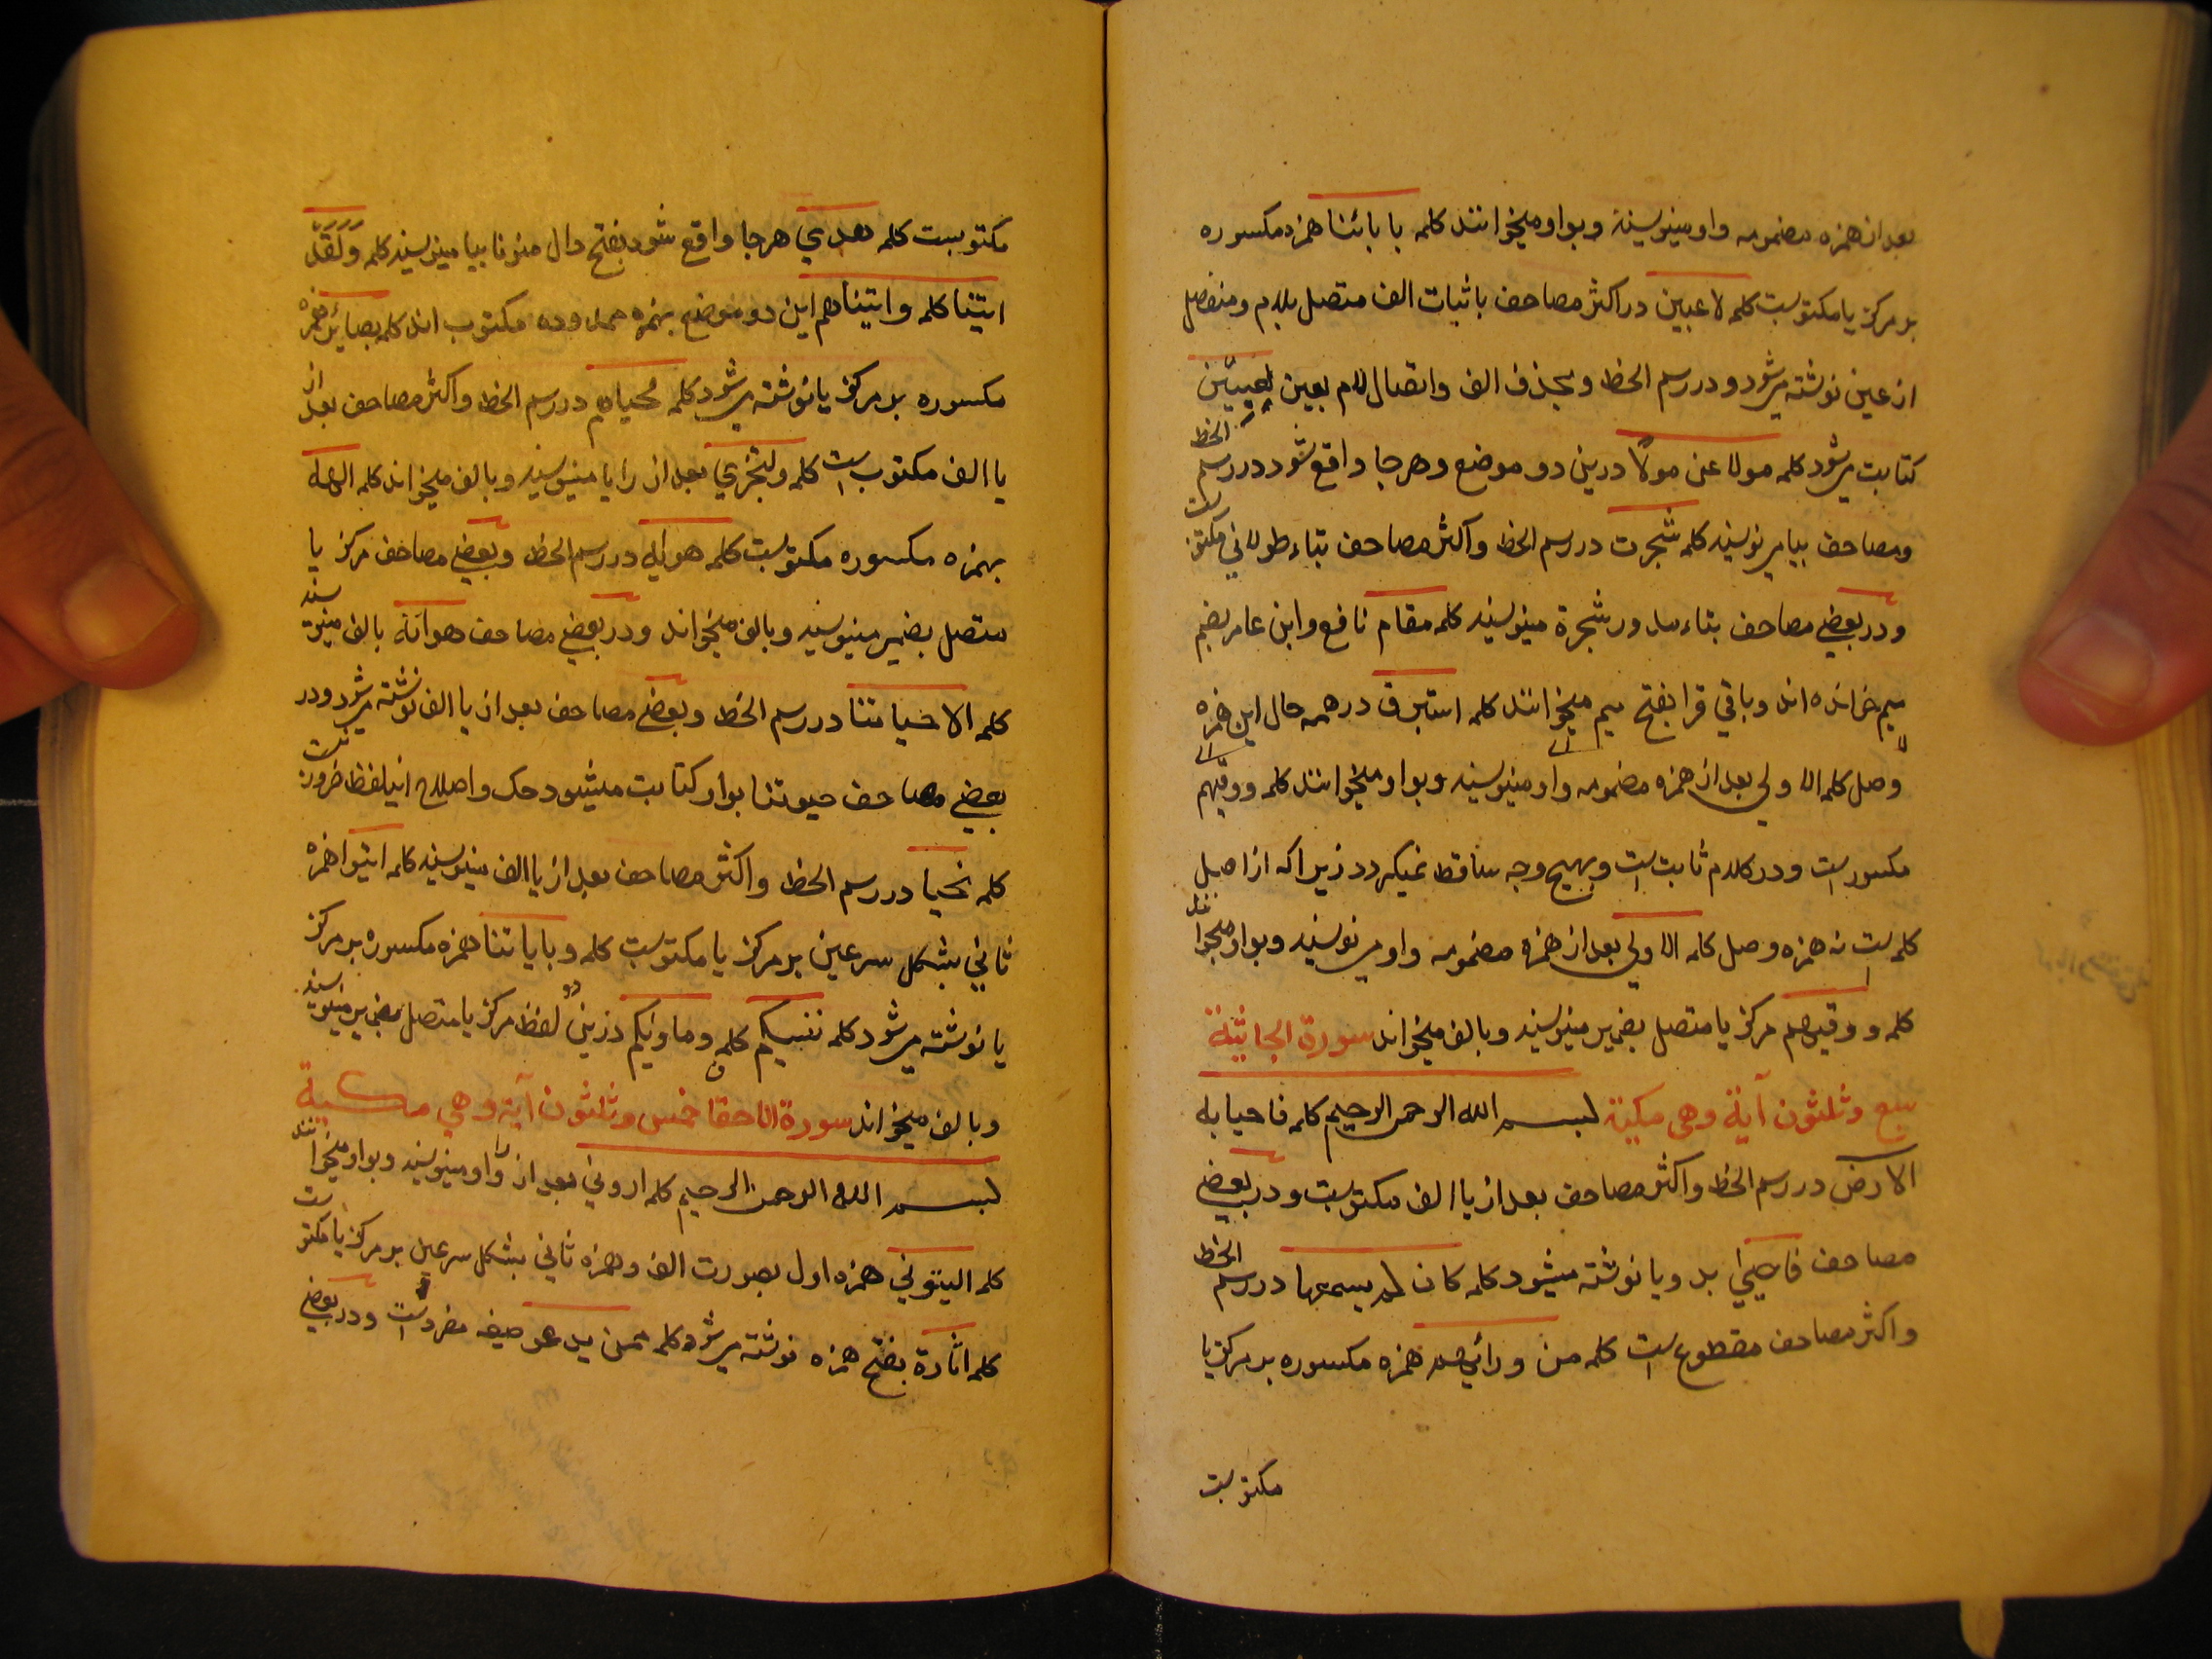 بعد از همزه مضمومه واو مینویسند و بواو میخوانند کلمه بابائنا همزه مکسوره
بر مرکز یا مکتوبست کلمه لاعبین در اکثر مصاحف باثبات الف متصل بلام و منفصل
از عین نوشته میشود و در رسم الخط و بحذف الف و اتصال لام بعین لعبین
کتابت میشود کلمه مولا عن مولا درین دو موضع و هرجا واقع شود در رسم الخط
و مصاحف بیا می نویسند کلمه شجرت در رسم الخط و اکثر مصاحف بتاء طولانی مکتوبست
و در بعضی مصاحف بتاء مدور شجرة مینویسند کلمه مقام نافع و ابن عامر بضم
میم خوانده اند و باقی قرا بفتح میم میخوانند کلمه استبرق در همه حال این همزه
وصل کلمه الاولی بعد از همزه مضمومه واو مینویسند و بواو میخوانند کلمه ووقیهم
مکسور است و در کلام ثابت است و بهیچ وجه ساقط نمیکردد زیرا که از اصل
کلمه است نه همزه وصل کلمه الاولی بعد از همزه مضمومه واو می نویسند و بواو میخوانند
کلمه ووقیهم مرکز یا متصل بضمیر مینویسند و بالف میخواند سورة الجاثیة
سبع وثلثون آیة وهی مکیة بسم الله الرحمن الرحیم کلمه فاحیا به
الارض در رسم الخط و اکثر مصاحف بعد از یا الف مکتوبست و در بعضی
مصاحف فاحیی بد و یا نوشته میشود کلمه کان لم یسمعها در رسم الخط
و اکثر مصاحف مقطوع است کلمه من ورائهم همزه مکسوره بر مرکز یا
مکتوبست
مکتوبست کلمه هدی هرجا واقع شود بفتح دال منونا بیا مینویسند کلمه ولقد
اتینا کلمه واتیناهم این دو موضع بهمزه ممدوده مکتوب اند کلمه بصائر همزه
مکسوره بر مرکز یا نوشته میشود کلمه محیاهم در رسم الخط و اکثر مصاحف بعد از
یا الف مکتوب است کلمه ولتجزی بعد از را یا مینویسند و بالف میخواند کلمه الهه
بهمزه مکسوره مکتوبست کلمه هوایه در رسم الخط و بعضی مصاحف مرکز یا
متصل بضمیر مینویسند و بالف میخواند و در بعضی مصاحف هواه بالف مینویسند
کلمه الا حیاتنا در رسم الخط و بعضی مصاحف بعد از یا الف نوشته میشود و در
بعضی مصاحف حیوتنا بواو کتابت میشود حک و اصلاح اینلفظ ضرور نیست
کلمه نحیا در رسم الخط و اکثر مصاحف بعد از یا الف مینویسند کلمه ائتوا همزه
ثانی بشکل سر عین بر مرکز یا مکتوبست کلمه و بابائنا همزه مکسوره بر مرکز
یا نوشته میشود کلمه ننسیکم کلمه و ماویکم درین دو لفظ مرکز یا متصل بضمیر مینویسند
و بالف میخواند سورة الاحقاف خمس وثلثون آیة وهی مکیة
بسم الله الرحمن الرحیم کلمه ارونی بعد از را واو مینویسند و بواو میخوانند
کلمه ایتونی همزه اول بصورت الف و همزه ثانی بشکل سر عین بر مرکز یا مکتوبست
کلمه اثارة بفتح همزه نوشته میشود کلمه ممن یدعو صیغه مفرد است و در بعضی